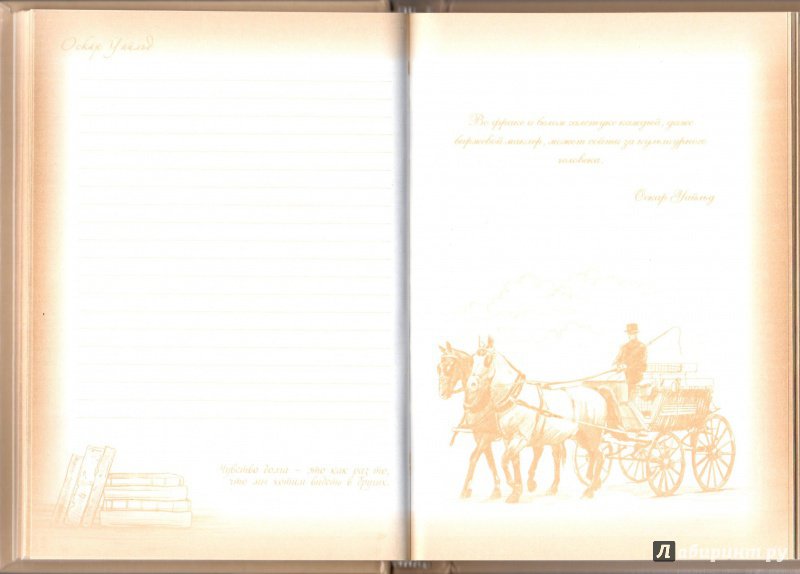 Оскар Уайльд
Чувство долга – это как раз то,
что мы хотим видеть в других.
Во фраке и белом галстуке каждый, даже
биржевой маклер, может сойти за культурного
человека.
Оскар Уайльд
Лабиринт.ру